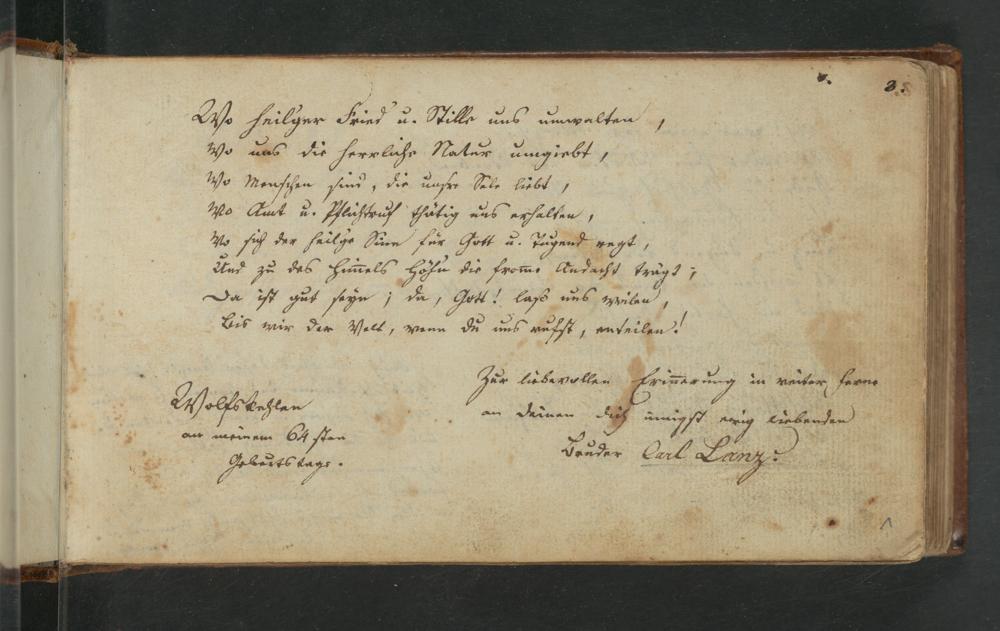 3.
Wo heilger Fried u. Stille uns umwalten,
Wo uns die herrliche Natur umgiebt,
Wo Menschen sind, die unsre Sele liebt,
Wo Amt u. Pflichtruf thätig uns erhalten,
Wo sich der heilge Sinn für Gott u. Tugend regt,
Und zu des Himels Höhn die frome Andacht trägt;
Da ist gut seyn; da, Gott! lass uns weilen,
Bis wir der Welt, wenn du uns rufst, enteilen!
Zur liebevollen Erinerung in weiter Ferne
an deinen dich innigst ewig liebenden
Bruder Carl Lanz.
Wolfskehlen
an meinem 64sten
Geburtstage.